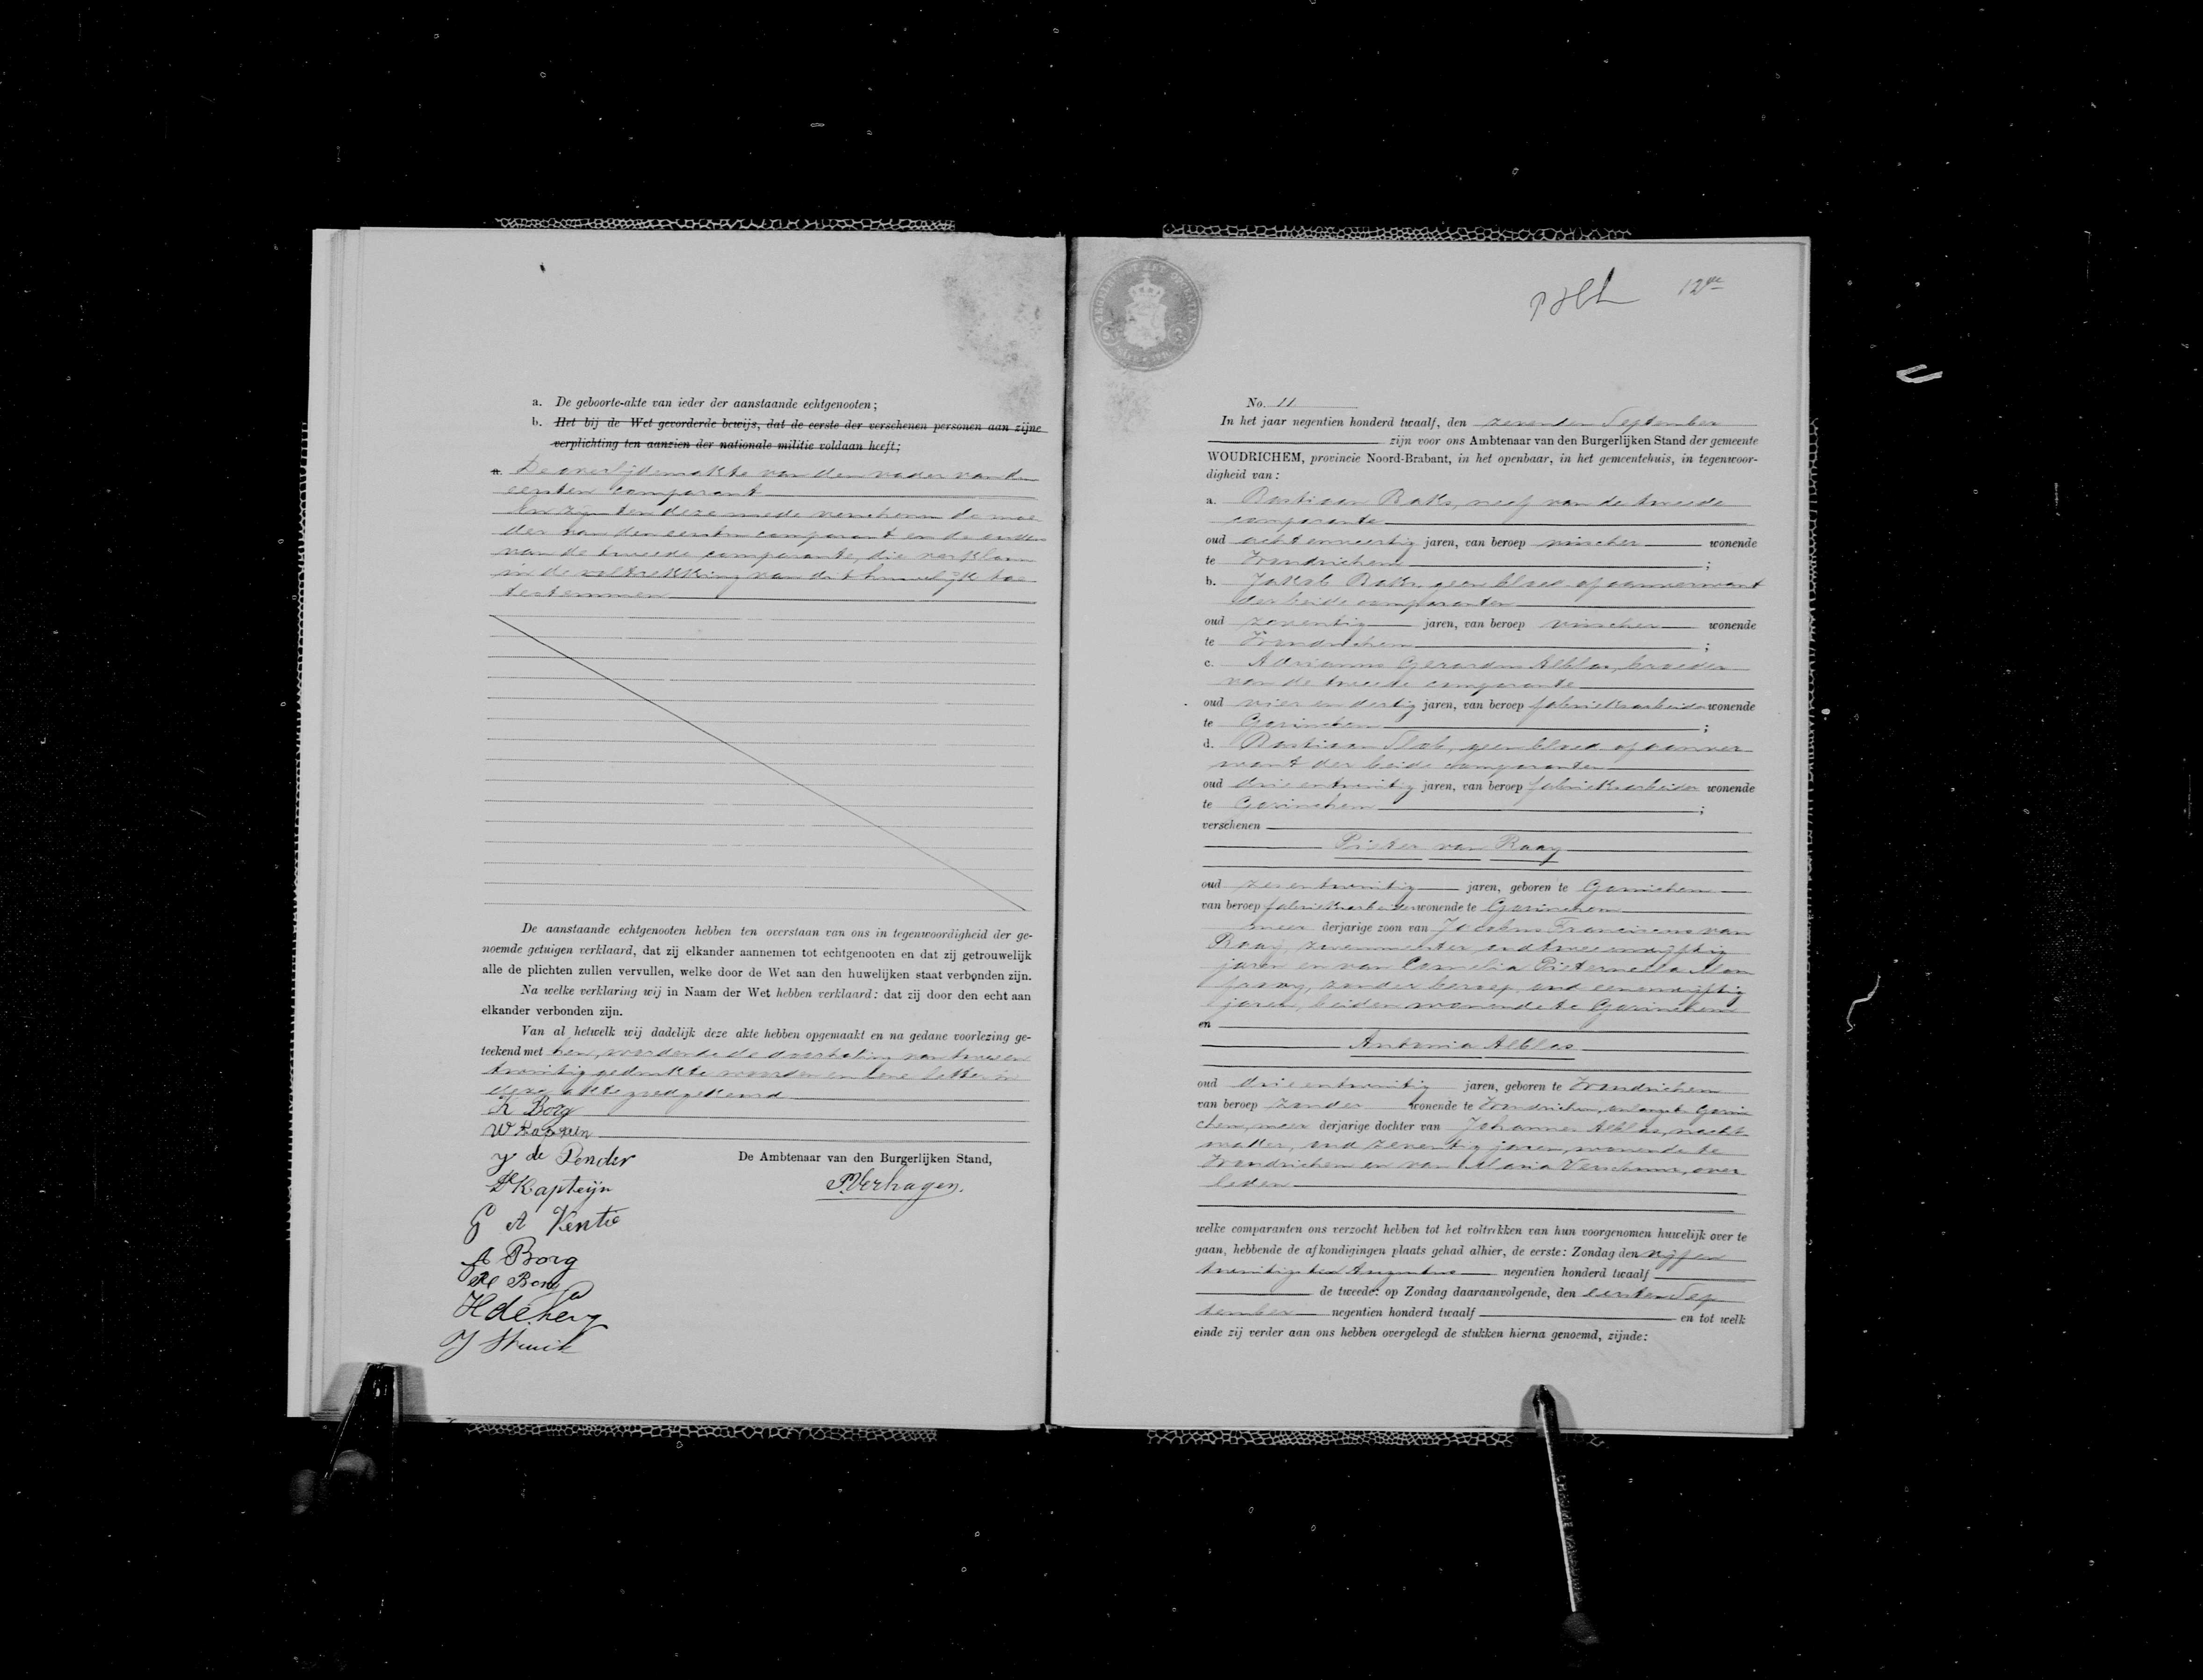 a. De geboorte-akte van ieder der aanstaande echtgenooten;
b. Het bij de Wet gevorderde bewijs, dat de eerste der verschenen personen aan zijne
verplichting ten aanzien der nationale militie voldaan heeft;
De overlijdensakte van den vader van den
eersten comparant
En zijn ten deze mede verschenen de moe
der van den eersten comparant en de ouders
van de tweede comparante, die verklaren
in de voltrekking van dit huwelijk toe
te stemmen
De aanstaande echtgenooten hebben ten overstaan van ons in tegenwoordigheid der ge-
noemde getuigen verklaard, dat zij elkander aannemen tot echtgenooten en dat zij getrouwelijk
alle de plichten zullen vervullen, welke door de Wet aan den huwelijken staat verbonden zijn.
Na welke verklaring wij in Naam der Wet hebben verklaard: dat zij door den echt aan
elkander verbonden zijn.
Van al hetwelk wij dadelijk deze akte hebben opgemaakt en na gedane voorlezing ge-
teekend met hen, wordende de doorhaling van twee en
twintig gedrukte woorden en eene letter in
deze akte goedgekeurd
K Borg
W
J de Pender
Kapteijn
De Ambtenaar van den Burgerlijken Stand,
P. Verhagen.
G A Kentie
A Borg
Borg
H de
J Struik
12de
No. 11
In het jaar negentien honderd twaalf, den zevenden September
zijn voor ons Ambtenaar van den Burgerlijken Stand der gemeente
WOUDRICHEM, provincie Noord-Brabant, in het openbaar, in het gemeentehuis, in tegenwoor-
digheid van:
a. Bastiaan Baks, neef van de tweede
comparante
oud acht en veertig jaren, van beroep visscher wonende
te Woudrichem ;
b. Jakob Baks, geen bloed of aanverwant
der beide comparanten
oud zeventig jaren, van beroep visscher wonende
te Woudrichem ;
c. Adrianus Gerardus Alblas, broeder
van de tweede comparante
oud vier en dertig jaren, van beroep fabrieksarbeider wonende
te Gorinchem ;
d. Bastiaan Slob, geen bloed of aanver
want der beide comparanten
oud drie en twintig jaren, van beroep fabrieksarbeider wonende
te Gorinchem ;
verschenen
Pieter van Raay
oud zes en twintig jaren, geboren te Gorinchem
van beroep fabrieksarbeider wonende te Gorinchem
meer derjarige zoon van Jacobus Franciscus van
Raay, oud twee en vijftig
jaren en van Cornelia Pieternella
zonder beroep, oud een en vijftig
jaren, beiden wonende te Gorinchem
en
Antonia Alblas
oud drie en twintig jaren, geboren te Woudrichem
van beroep zonder wonende te Woudrichem, onlangs te Gorin
chem, meer derjarige dochter van Johannes Alblas, nacht
waker, oud zeventig jaren, wonende te
Woudrichem en van Maria Verschuur, over
leden
welke comparanten ons verzocht hebben tot het voltrekken van hun voorgenomen huwelijk over te
gaan, hebbende de afkondigingen plaats gehad alhier, de eerste: Zondag den vijf en
twintigsten Augustus negentien honderd twaalf
de tweede: op Zondag daaraanvolgende, den eersten Sep
tember negentien honderd twaalf en tot welk
einde zij verder aan ons hebben overgelegd de stukken hierna genoemd, zijnde: